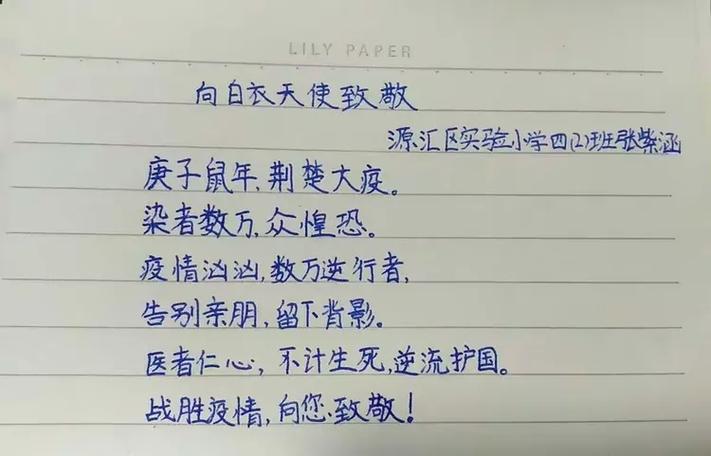 LILY PAPER
向白衣天使致敬
源汇区实验小学四(2)班张紫涵
庚子鼠年,荆楚大疫。
染者数万,众惶恐。
疫情汹汹,数万逆行者,
告别亲朋,留下背影。
医者仁心,不计生死,逆流护国。
战胜疫情,向您致敬!